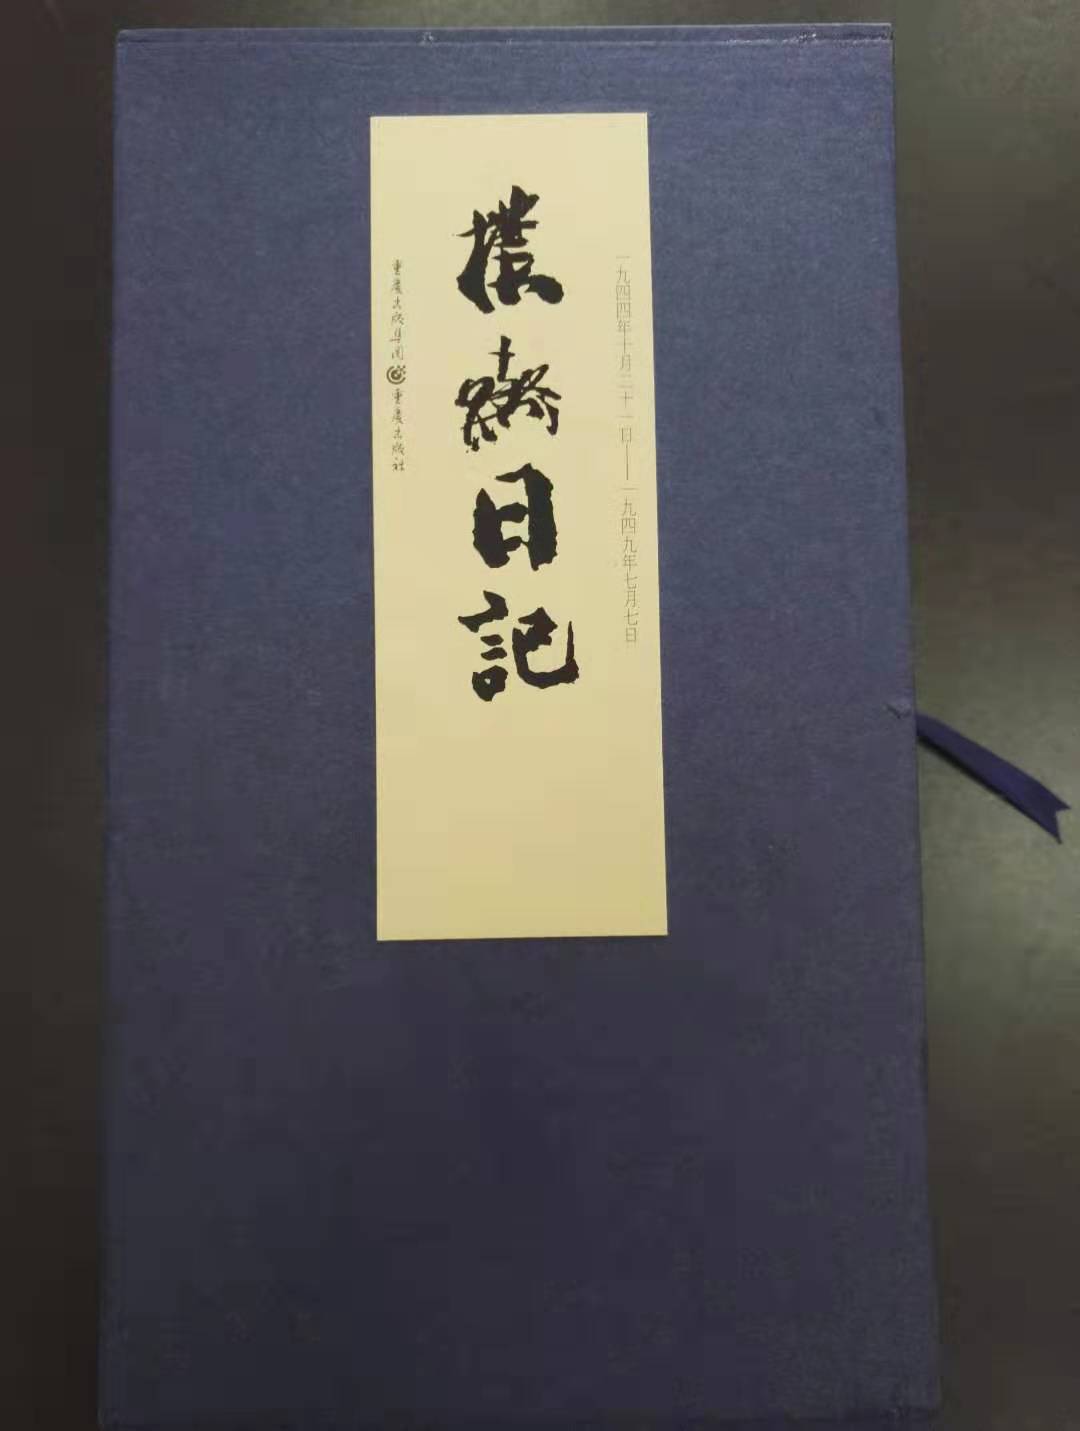 一九四四年十月二十一日——一九四九年七月七日
樸日記
重慶出版集團 重慶出版社